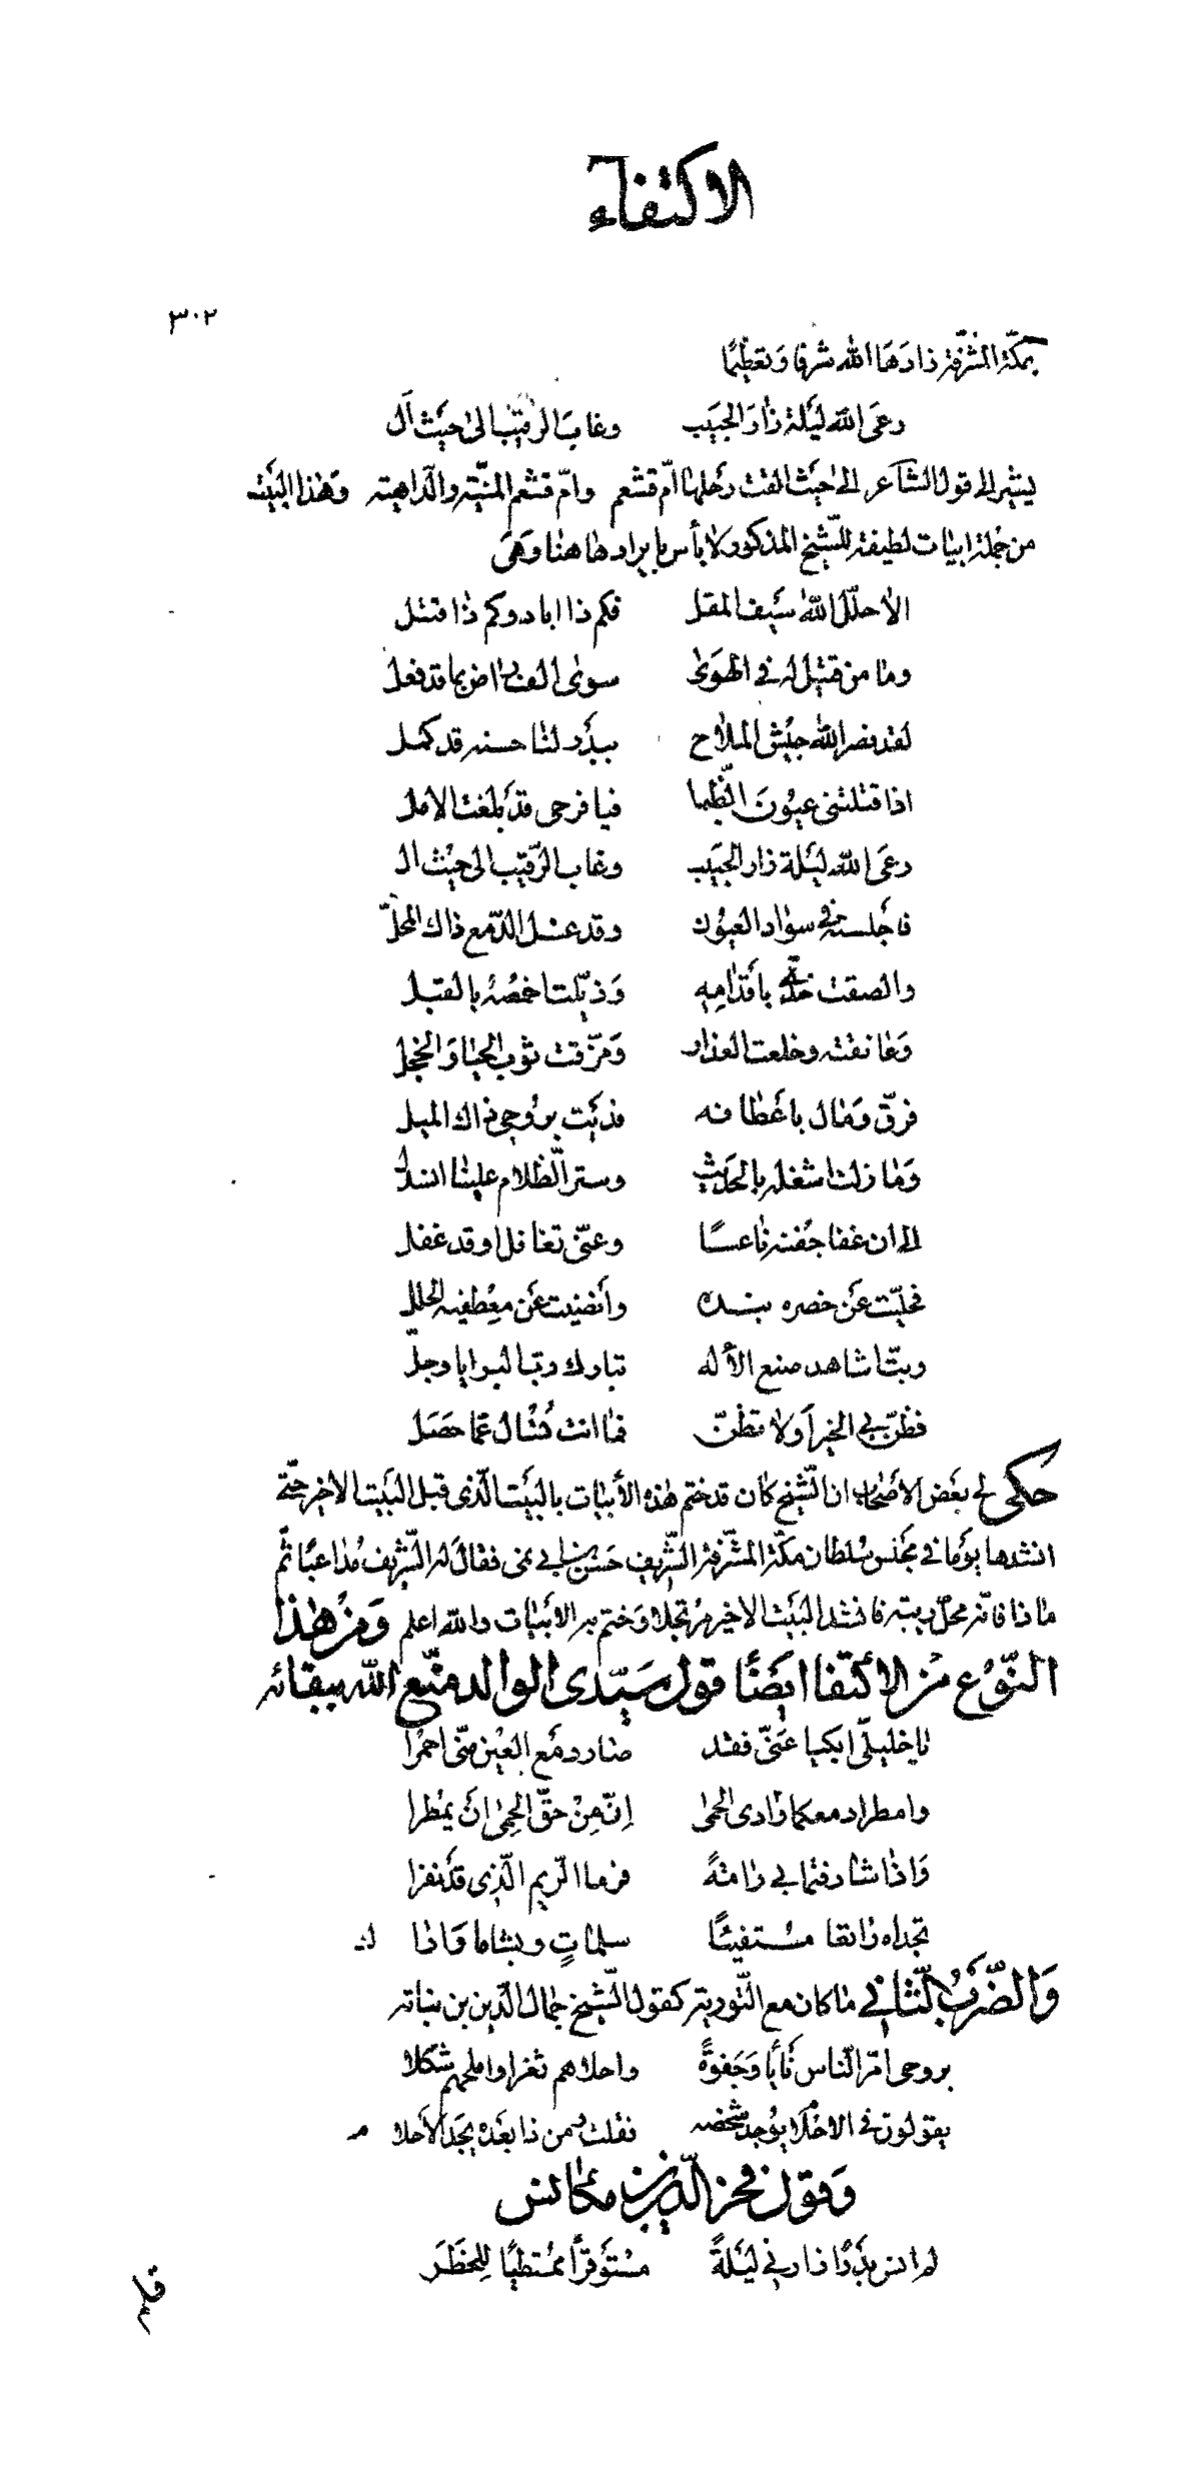 الاكتفاء
٣٠٢
بمكّة المشرّفة زادَهَا الله شرفا وَتعظيمًا
رعَى اللّه ليَلة زارَ الحبيَب وغابَ الرّقيب الىٰ حيَث اَل
يشير الى قول الشاعر الىٰ حيَث القت رَحلها اُمّ قشعم وامّ قشعم المنيّة والدّاهية وهٰذا البيَت
من جُملة ابيات لطيفة للشّيخ المذكور ولا بأس بايرادها هنا وَهَى
الا حلّل اللّه سَيف المقل فكم ذا اباد وكم ذا قتل
وما من قتيل له فى الهَوىٰ سوىٰ راض بما قد فعل
لقد نصر اللّه جيَش الملاح ببدَر لنا حسنه قد كمل
اذا قتلتنى عيُونَ الظّبا فيا فرحى قدَ بلغت الامل
رعَى اللّه ليَلة زار الحبيَب وغاب الرّقيب الى حيَث ال
فاجَلسته فى سوٰاد العيوُن وقد غسل الدّمع ذاك المحلّ
والصقت خدّى باقَدامِه وَذيّلت اخمصُهُ بالقبل
وَعانقته وخلعت العذار وَمزّقت ثوب الحيا وَالخجل
فرقّ وَمال باعَطافه فديَت برُوحى ذاك الميل
وَما زلت اشغله بالحدَيث وستر الظّلام علينا انسدل
الى ان غفا جفَنه ناعسًا وعنّى تغافل اوقد غفل
فحليّت عَن خصره بنده وأنضيت عَن معِطفيه الحلل
وبتّ اشاهد صنع الأله تبارك ربّ البرايا وجلّ
فظنّ بى الخير اَو لا تظنّ فمَا انت تُسْال عمّا حصَل
حكى لى بعَض الاصَحاب ان الشّيخ كان قد ختم هٰذه الأبيات بالبيَت الّذى قبل البيَت الاخير حتّى
انشدها يوَما فى مجَلس سُلطان مكّة المشرّفة الشّريف حَسَن بن ابى نمى فقال له الشّريف مُداعبًا ثمّ
ماذا فانشد البيَت الاخير مرُتجلا وَختم به الابَيات واللّه اعلم وَمِنْ هٰذا
النّوُع مِن الاكتفا ايَضًا قول سَيّدى الوالد متّع اللّه ببقائه
يا خليلّى ابكيا عَنّى فقد صار دمَع العَيْن منّى احمرُا
وامطرا دمعكما وَادى الحمىٰ اِنّ مِنْ حقّ الحِمىٰ انَ يمُطرا
وَاذا شارفتما بى رامةً فرما الرّيم الّذى قدَ نفرا
تجداه راتعا مسُتفيئًا سلماتٍ وبشاما وَاذا
وَالضّربُ الثّانى ما كان مع التّورية كقول الشّيخ جمال الدّين بن نباته
بروحى امّر النّاس نَأيا وَجَفوةً واحلاهم ثغرا واملحهم شكلا
يقولون فى الاحْلام يوُجد شخصه فقلتُ ومن ذا بعَده يجَد الاَحلا م
وَقول فخر الدّين بن مكانس
لم انس بدَرًا زار فى ليَلةً مسْتوَفزًا ممُتطيًا للِخطَر
فلم